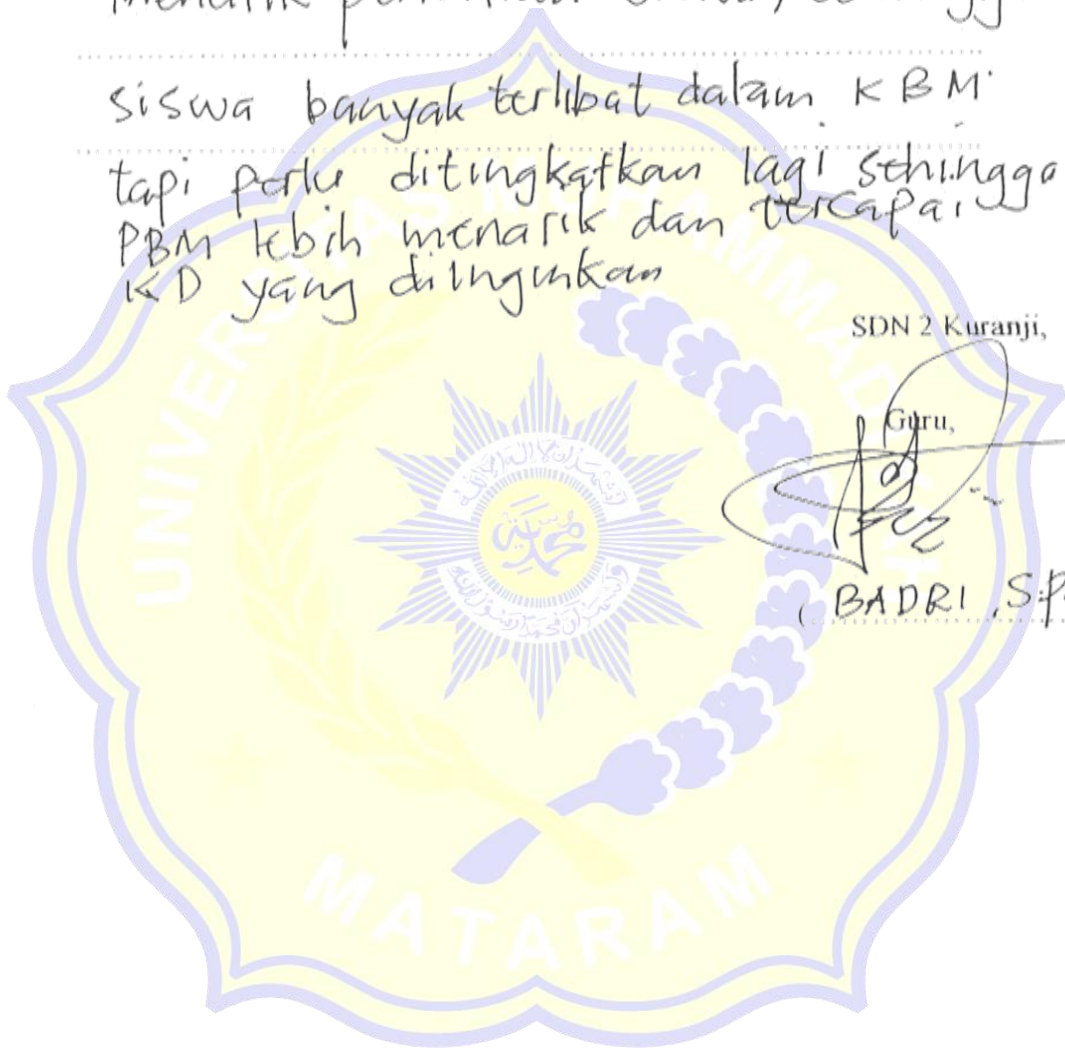 menarik
siswa banyak terlibat dalam KBM
tapi perlu ditingkatkan lagi sehingga
PBM lebih menarik dan tercapai
KD yang diinginkan
SDN 2 Kuranji,
Guru,
( BADRI, S.P
UNIVERSITAS MUHAMMADIYAH
MATARAM